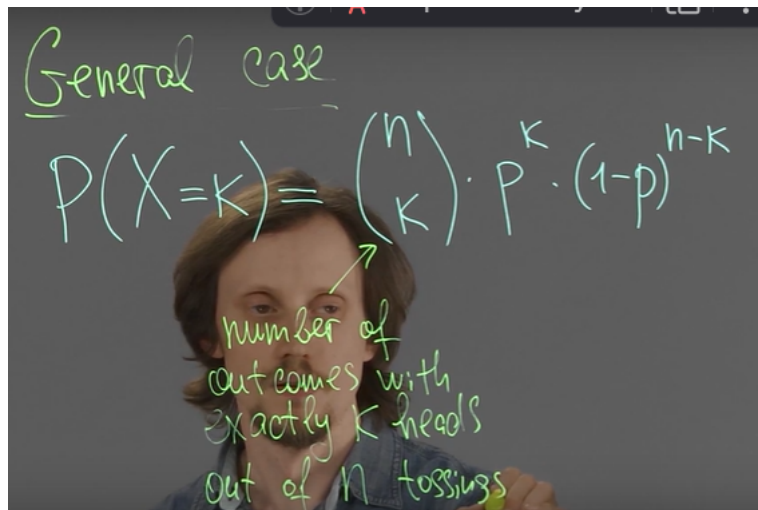 General case
P(X=K) = (n K) · p^K · (1-p)^{n-K}
number of
outcomes with
exactly K heads
out of n tossings